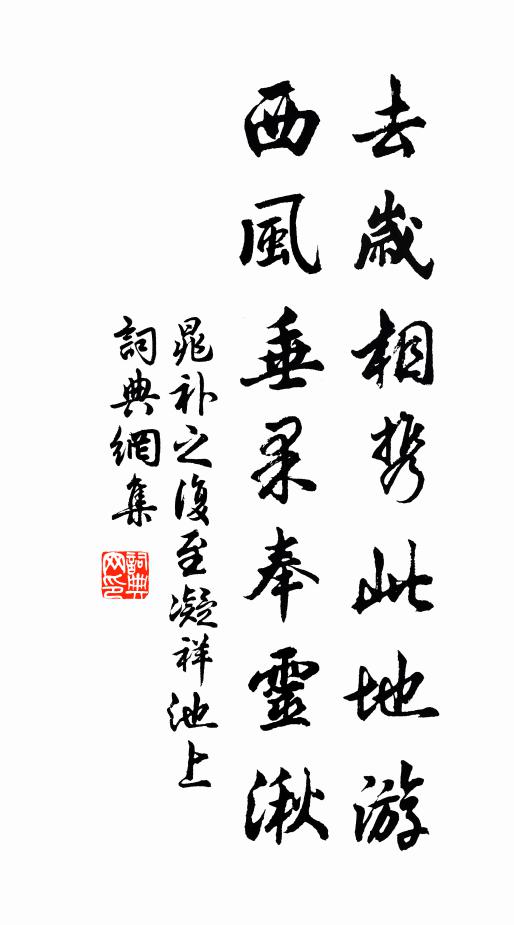 去歲相携此地游
西風垂果奉靈湫
晁补之復至凝祥池上
詞典網集
詞典網印